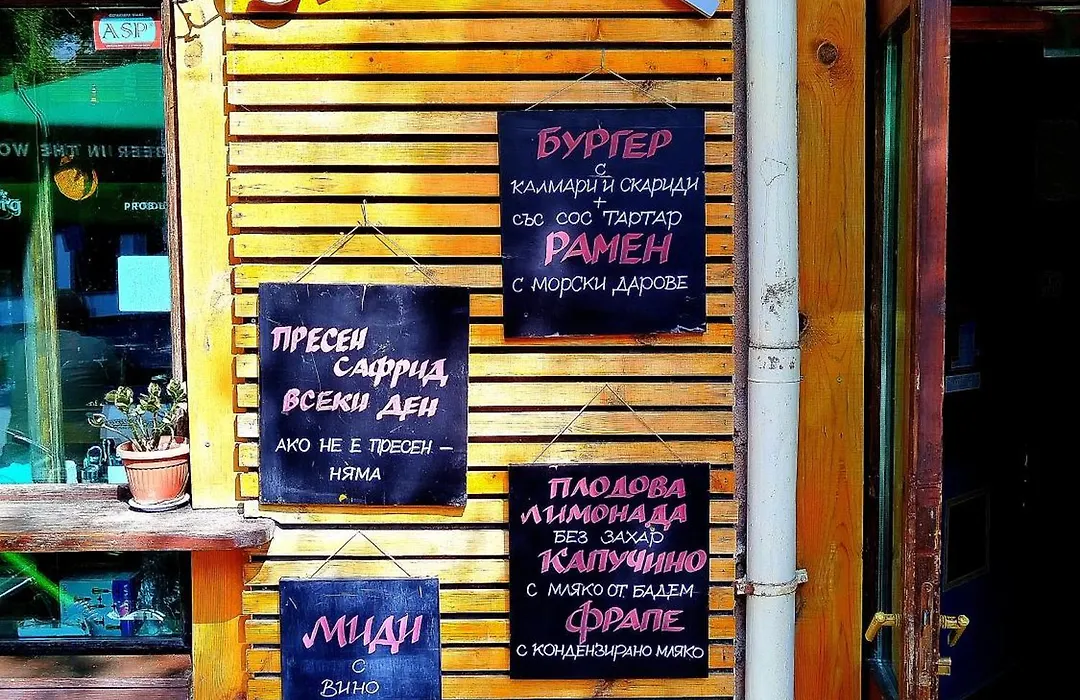 ASP
BEER IN THE WO
БУРГЕР
С
КАЛМАРИ И СКАРИДИ
+
СЪС СОС ТАРТАР
РАМЕН
С МОРСКИ ДАРОВЕ
ПРЕСЕН
САФРИД
ВСЕКИ ДЕН
АКО НЕ Е ПРЕСЕН –
НЯМА
ПЛОДОВА
ЛИМОНАДА
БЕЗ ЗАХАР
КАПУЧИНО
С МЛЯКО ОТ БАДЕМ
ФРАПЕ
С КОНДЕНЗИРАНО МЛЯКО
МИДИ
С
ВИНО